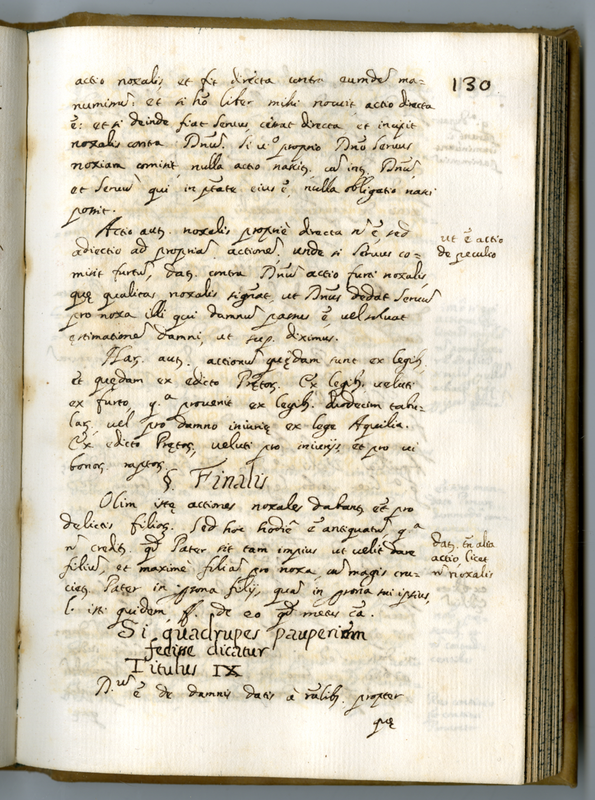 130
actio noxalis, et fit directa contra eumdē ma=
numissū: et si hō liber mihi nocuit actio directa
ē: et si deinde fiat servus cessat directa et incipit
noxalis contra Dn̄ū. Si v.º proprio Dn̄o servus
noxiam comisit, nulla actio nascit.
et servū qui in ptāte eius ē, nulla obligatio nasci
possit.
Actio aut. noxalis propriè directa n̄ ē, sed
adiectio ad propriā actionē, unde si servus co=
misit furtū, dat. contra Dn̄ū actio furti noxalis,
quę qualitas noxalis signat, ut Dn̄us dedat servū
pro noxa illi qui damnū passus ē, vel solvat
ęstimationē damni, ut sup. diximus.
ut ē actio
de peculio
Haȝ. aut. actionū quędam sunt ex legib.
et quędam ex edicto Prętoȝ. Ex legib. veluti
ex furto, q.ª provenit ex legib. duodecim tabu=
laȝ, vel pro damno iniurię ex lege Aquilia.
Ex edicto Prętoȝ, veluti pro iniurijs et pro vi
bonoȝ raptoȝ.
§ Finalis
Olim istę actiones noxales dabant. et pro
delictis filioȝ. Sed hoc hodiè ē antiquatū, q.ª
n̄ credit. qd̄ Pater sit tam impius ut velit dare
filiū, et maximè filiā pro noxa, cū magis cru=
ciet. Pater in psona filij, quā in proria sui ipsius,
l. isti quidem ff. de eo qd̄ metus cā.
dat. tn̄ alia
actio, licet
n̄ noxalis
Si quadrupes pauperiem
fecisse dicatur
Titulus IX
ē de damnis datis à propter
quę